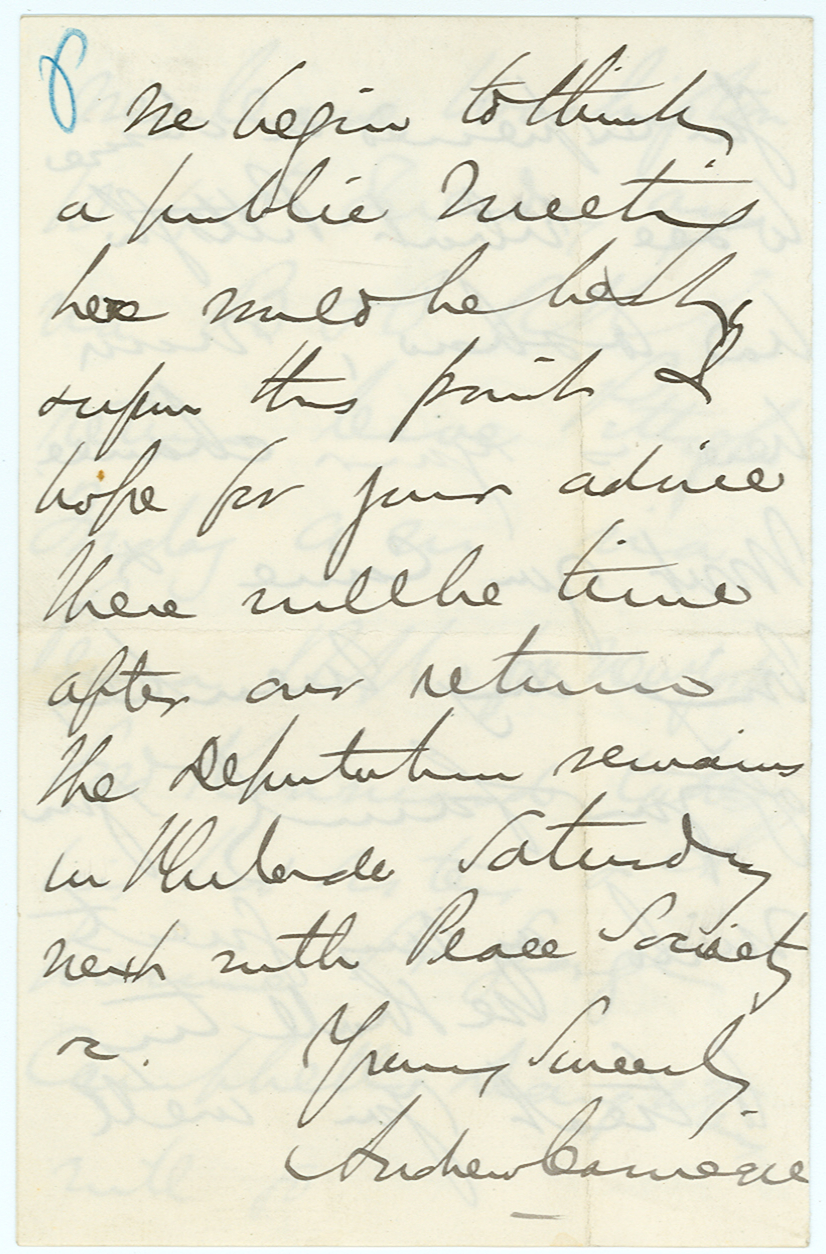 We begin to think
a public Meeting
here would be best,
& upon this point I
hope for your advice
There will be time
after our return
The Deputation remains
in Philada Saturday
next with Peace Society
&c.
Yours Sincerely
Andrew Carnegie